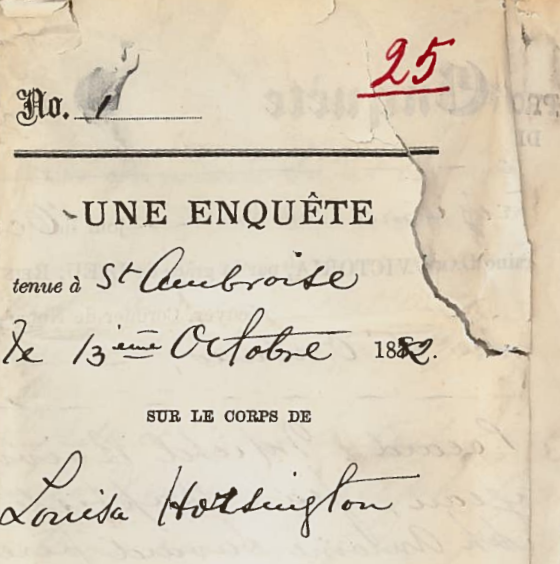 25
No. 1
UNE ENQUÊTE
tenue à St Ambroise
Le 13ième Octobre 1882.
SUR LE CORPS DE
Louisa Horsington